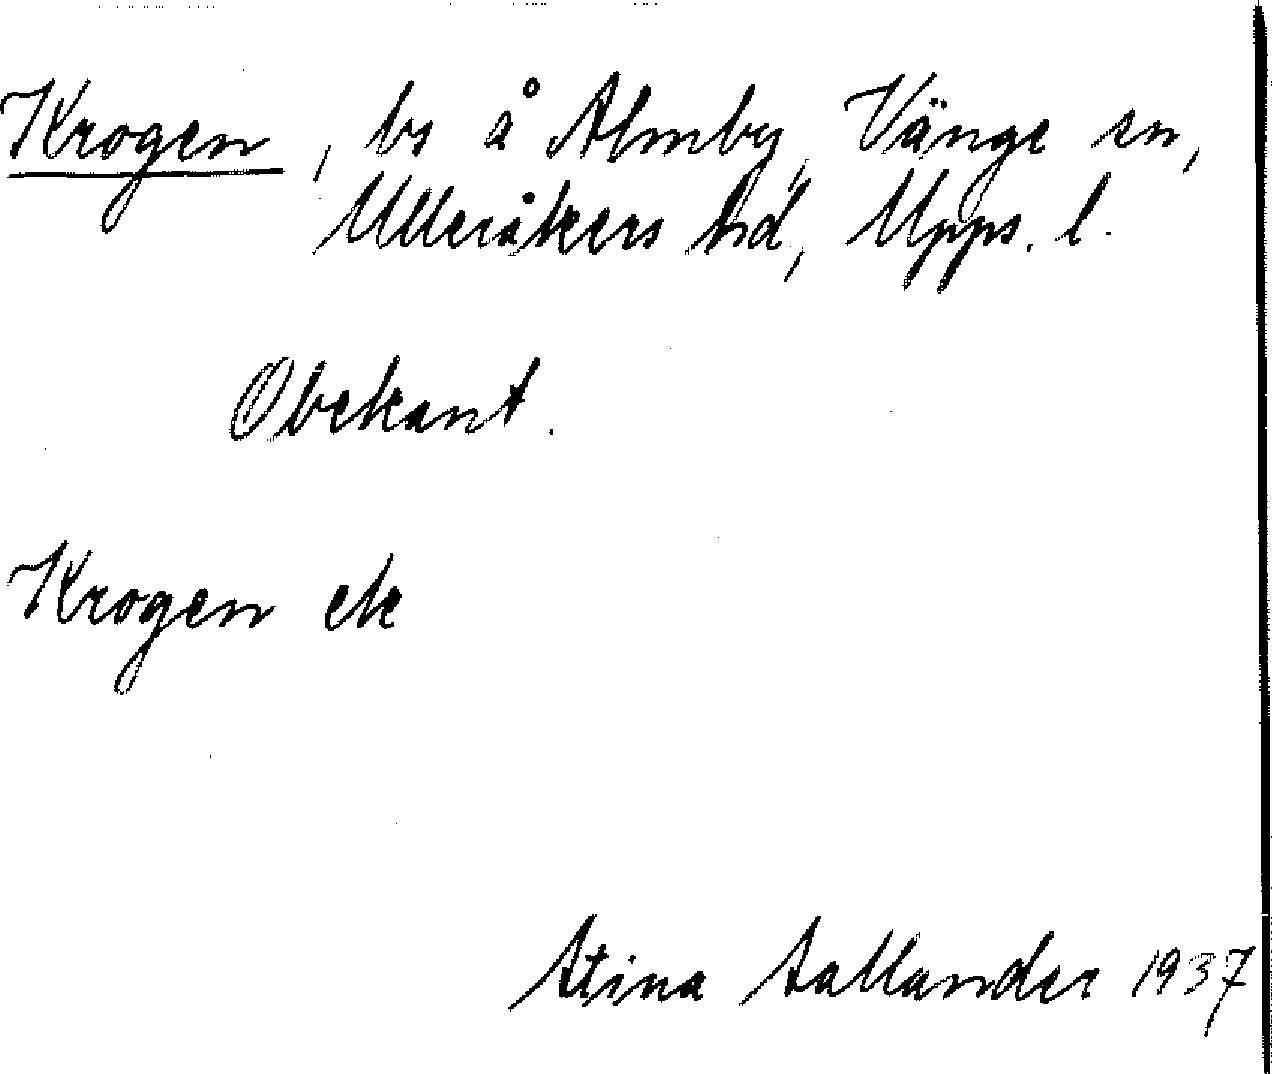 Krogen, bs å Almby, Vänge sn,
Ulleråkers hd, Upps. l.
Obekant.
Krogen ek
Stina Sallander 1937